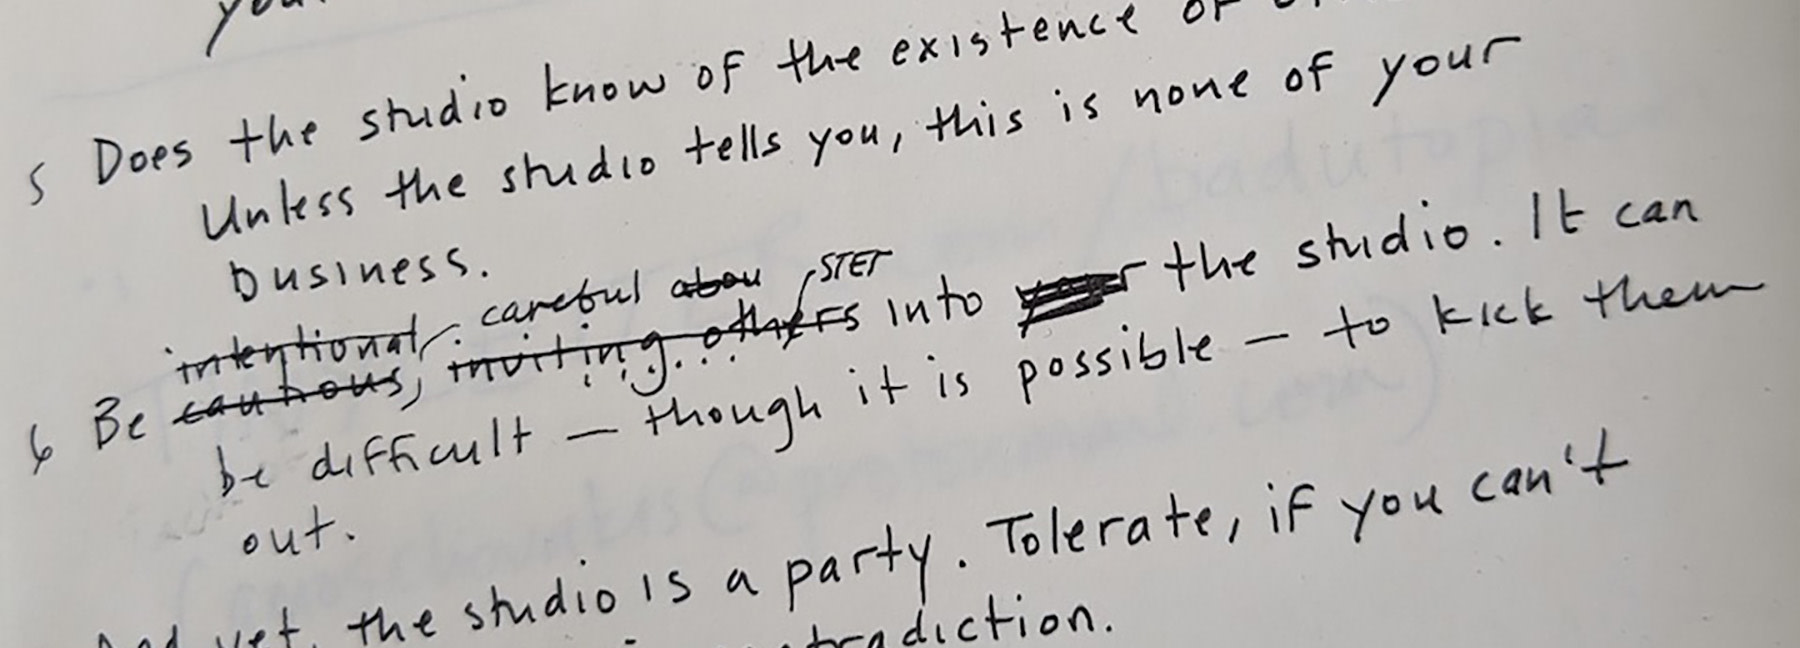 5 Does the studio know of the existence of
Unless the studio tells you, this is none of your
business.
intentional careful abou STET
6 Be cautious, inviting others into the studio. It can
be difficult — though it is possible — to kick them
out.
And yet, the studio is a party. Tolerate, if you can't